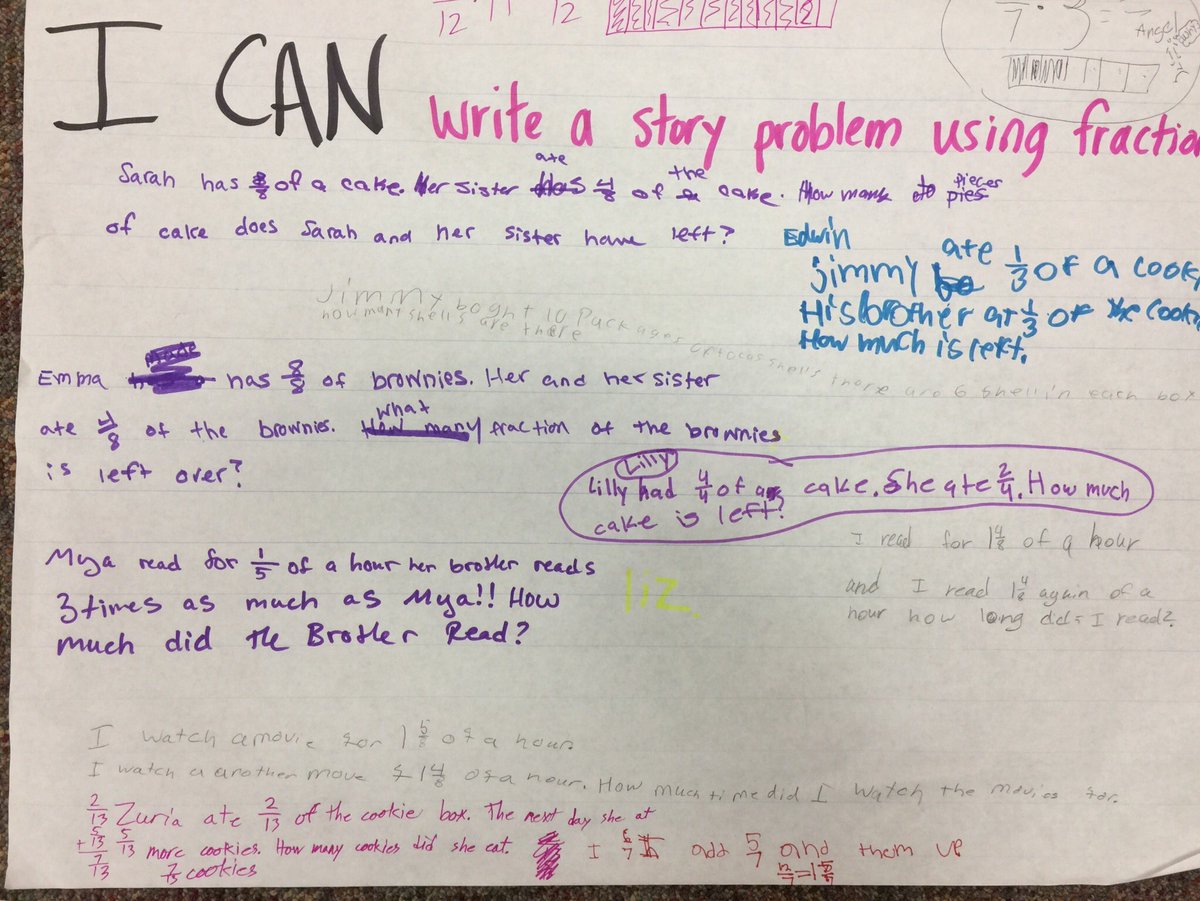 12 11 12
7 · 3 = 7
Angel
I CAN write a story problem using fraction
Sarah has 8/8 of a cake. Her sister ate 4/8 of the cake. How many pieces
of cake does Sarah and her sister have left?
Edwin
Jimmy ate 1/3 of a cook
His brother at 1/3 of the cook
How much is left.
Jimmy boght 10 Packages of tocos shells there are 6 shell in each box
how many shells are there
Emma has 8/8 of brownies. Her and her sister
ate 4/8 of the brownies. What fraction of the brownies
is left over?
Lilly
Lilly had 4/4 of a cake. She ate 2/4. How much
cake is left?
I read for 1 4/8 of a hour
and I read 1 again of a
hour how long did I read?
Mya read for 1/5 of a hour her brother reads
3 times as much as Mya!! How
much did the Brother Read?
liz
I watch a movie for 1 of a hour
I watch a another move f 1 4/8 of a hour. How much time did I watch the movies for.
2/13 Zuria ate 2/13 of the cookie box. The next day she at
+ 5/13 5/13 more cookies. How many cookies did she eat.
7/13 cookies
I add 5/7 and them up